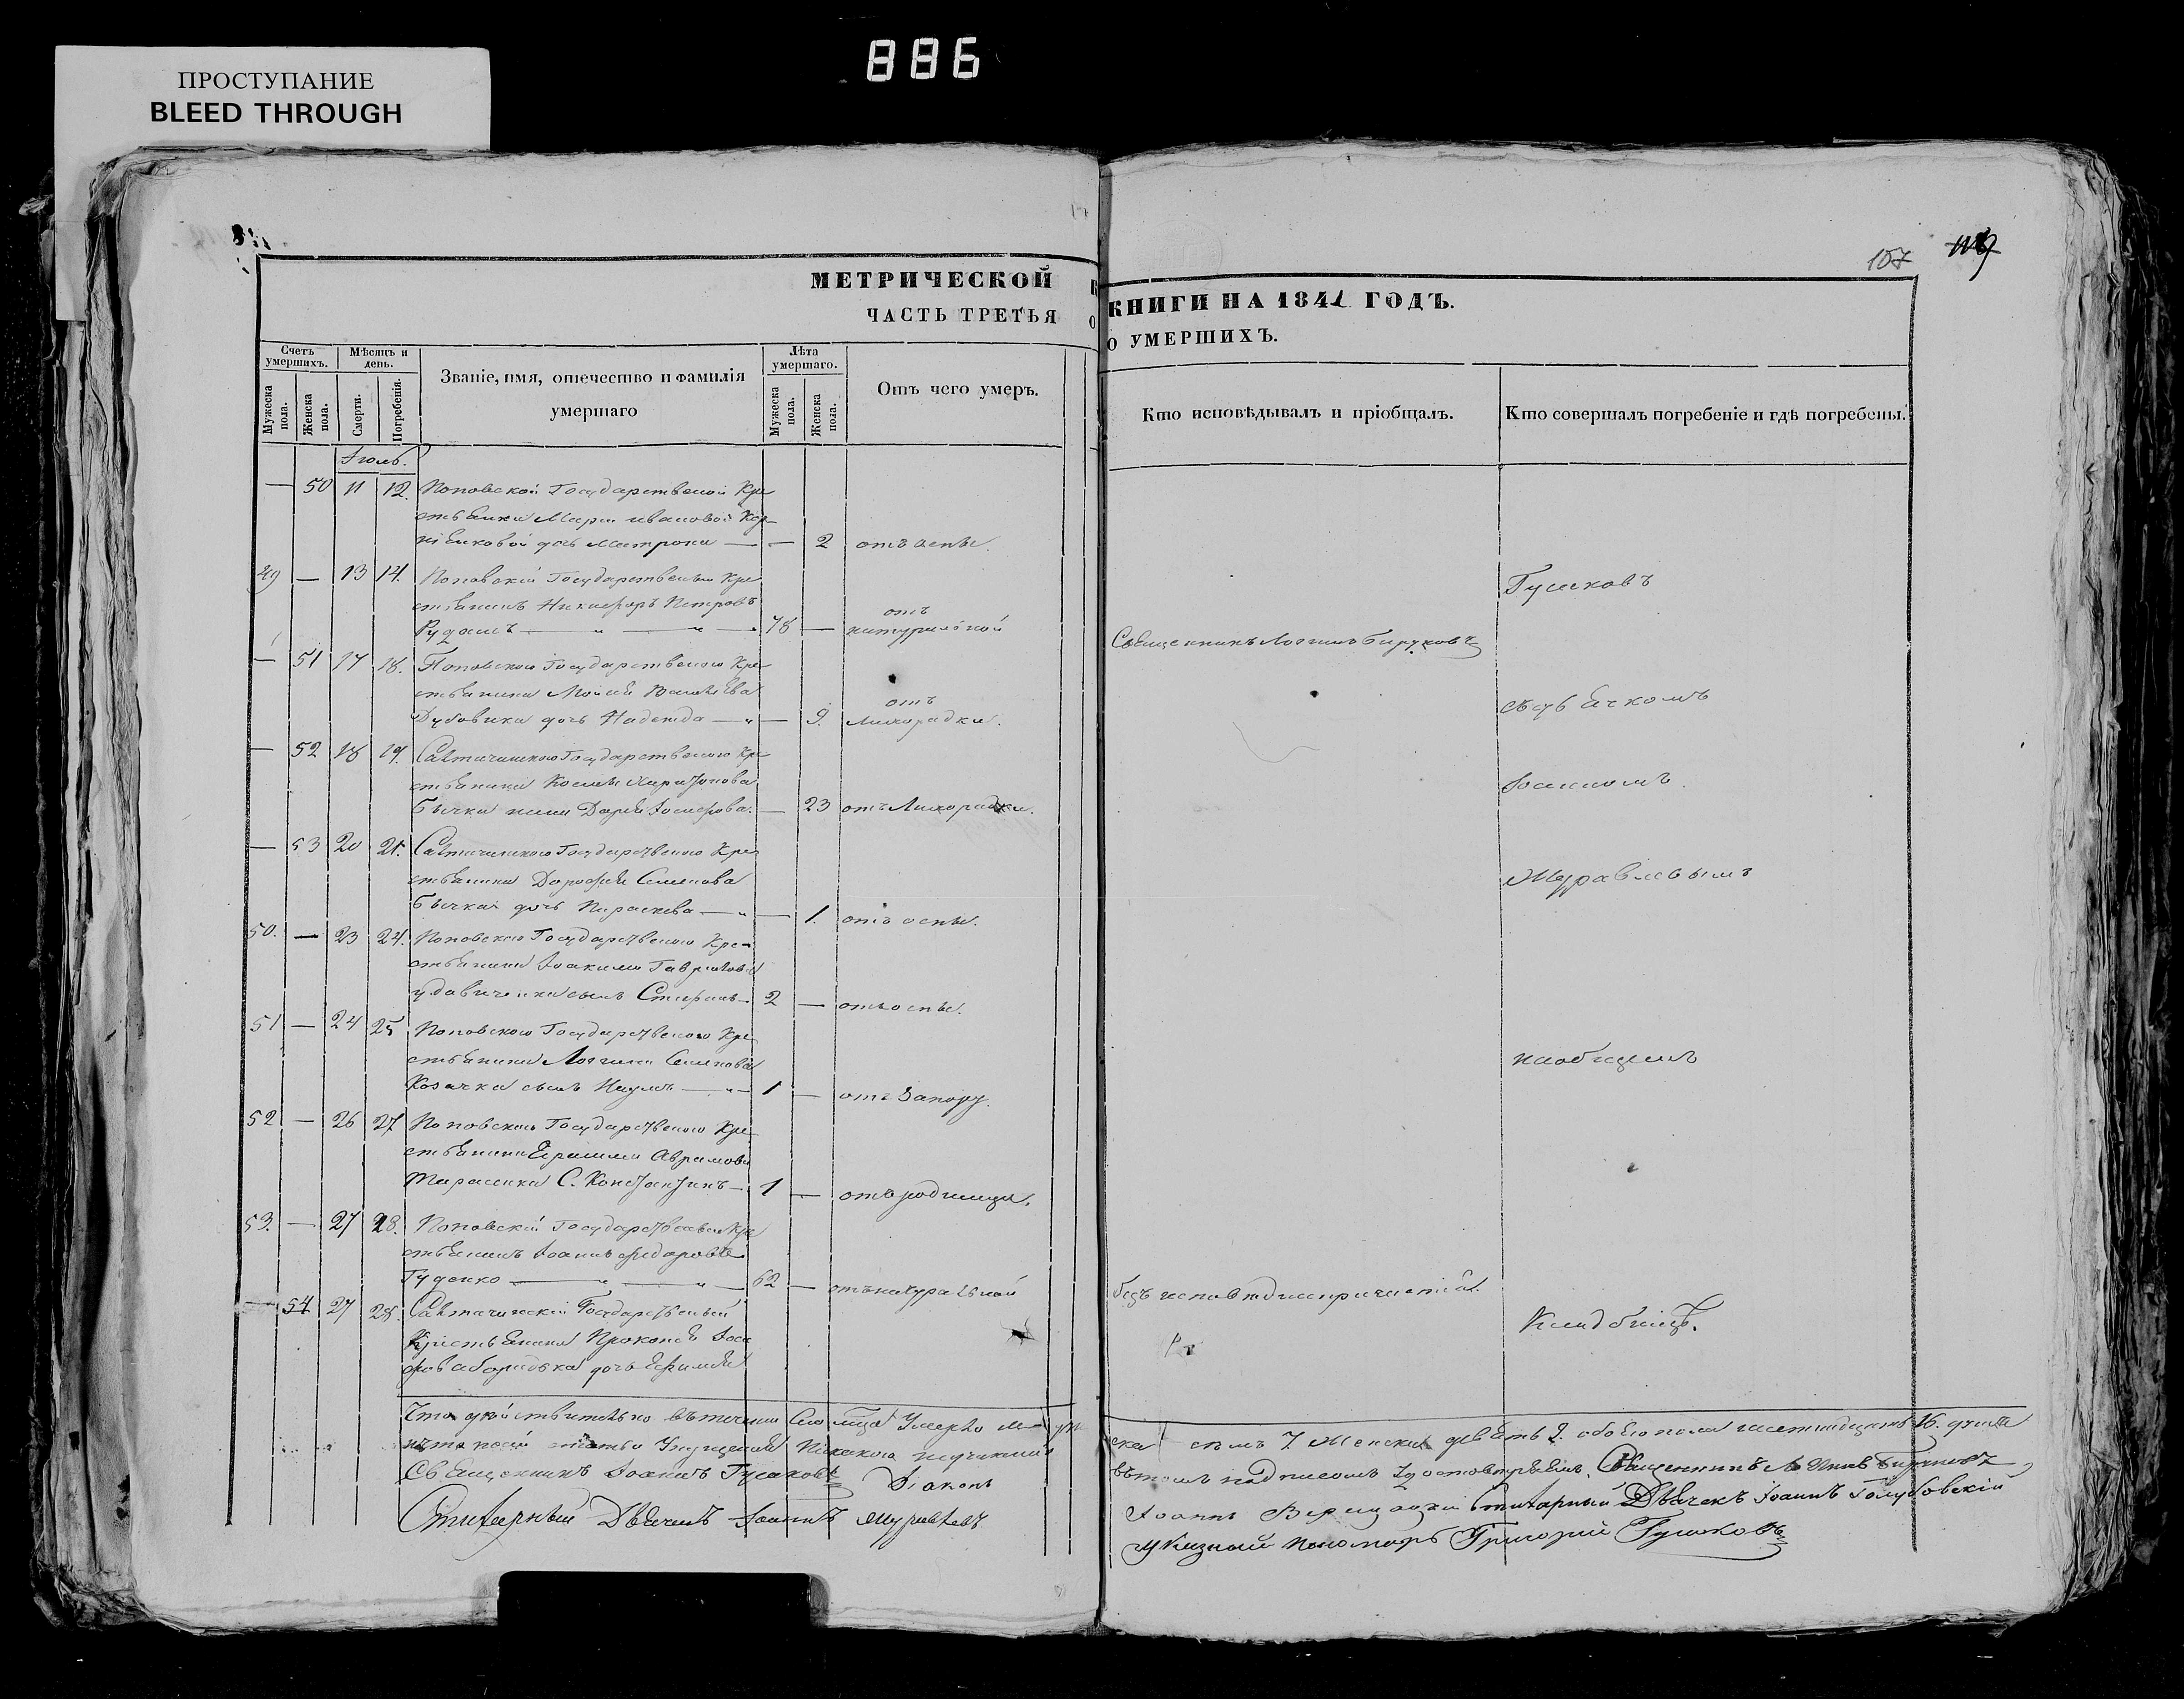 886
ПРОСТУПАНИЕ
BLEED THROUGH
107
МЕТРИЧЕСКОЙ КНИГИ НА 1841 ГОДЪ.
ЧАСТЬ ТРЕТЬЯ О УМЕРШИХЪ.
Счетъ умершихъ.
Мужеска пола.
Женска пола.
Мѣсяцъ и день.
Смерти.
Погребенія.
Званіе, имя, отечество и фамилія умершаго
Лѣта умершаго.
Мужеска пола.
Женска пола.
Отъ чего умеръ.
Кто исповѣдывалъ и пріобщалъ.
Кто совершалъ погребеніе и гдѣ погребены.
Іюль.
— 50 11 12. Поповской Государственой Кре
стьянки Маріи Ивановой
дочь Матрона — — 2 отъ оспы.
49 — 13 14. Поповскій Государственый Кре
стьянинъ Никифоръ Петровъ
Рудашъ 78 — отъ натуральной
Священникъ Логгинъ Бируковъ
Гусаковъ
— 51 17 18. Поповского Государственого Кре
стьянина Моисея
Дубовика дочь Надежда — 9. отъ Лихорадки.
съ дьячкомъ
— 52 18 19. Государственого Кре
стьянина Космы Харитонова
Бычка жена Дарія Іосифова. — 23 отъ Лихорадки.
Іоанномъ
— 53 20 21. Государственого Кре
стьянина Дорофея Семенова
Бычка дочь Параскева — 1. отъ оспы.
Журавлевымъ
50. — 23 24. Поповского Государственого Кре-
стьянина Іоакима Гаврилова
сынъ Стефанъ 2 — отъ оспы.
51 — 24 25 Поповского Государственого Кре
стьянина Логгина Семенова
Козачка сынъ Наумъ 1 — отъ Запору.
на общемъ
52 — 26 27 Поповского Государственого Кре
стьянина Аврамова
Тарасенка С. Константинъ 1 — отъ родимца.
53. — 27 28. Поповскій Государственый Кре
стьянинъ Іоаннъ Федоровъ
Гуденко 62 — отъ натуральной
безъ исповѣди и причастія.
— 54 27 28. Государственый
Крістьянина Прокопія
дочь Ефимія
Кладбищѣ.
Что дѣйствительно въ теченіи Сего мца Умерло
седмъ 7 Женска девять 9. обоего пола шестнадцать 16. душъ
въ томъ подписомъ Удостовѣряемъ. Священникъ Логгинъ Бируковъ
Священникъ Іоаннъ Гусаковъ
Діаконъ Іоаннъ
Стихарный Дьячекъ Іоаннъ Голубовскій
Стихарный Дьячекъ Іоаннъ Журавлевъ
Указный Пономарь Григорій Гусаковъ